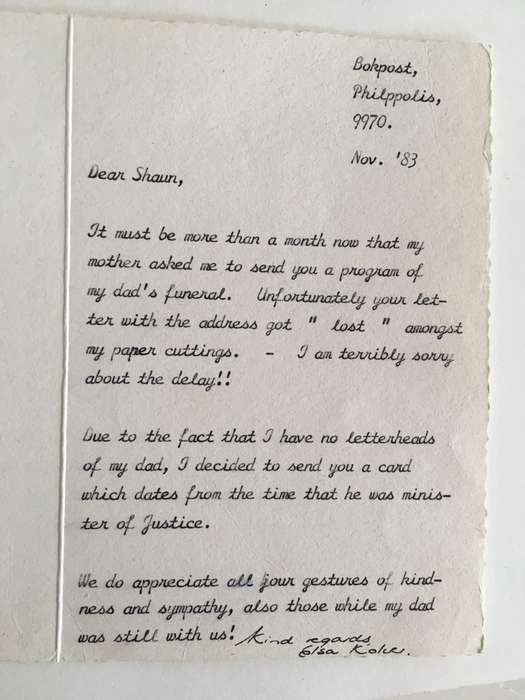 Bokpost,
Philppolis,
9970.
Nov. '83
Dear Shaun,
It must be more than a month now that my
mother asked me to send you a program of
my dad's funeral. Unfortunately your let-
ter with the address got " lost " amongst
my paper cuttings. - I am terribly sorry
about the delay!!
Due to the fact that I have no letterheads
of my dad, I decided to send you a card
which dates from the time that he was minis-
ter of Justice.
We do appreciate all your gestures of kind-
ness and sympathy, also those while my dad
was still with us! Kind regards
Elsa